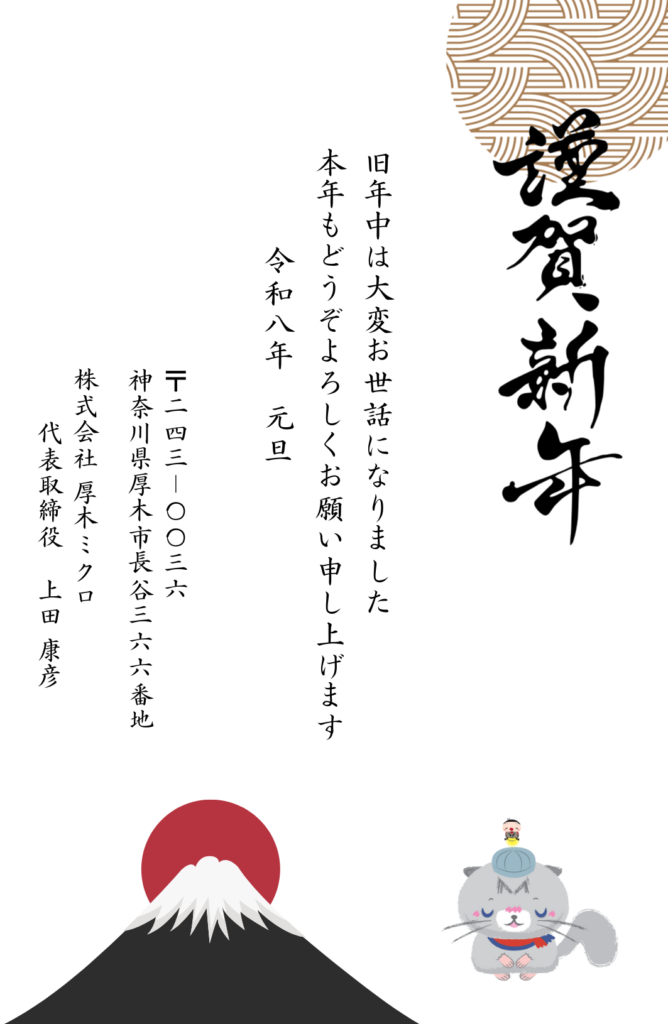 謹賀新年
旧年中は大変お世話になりました
本年もどうぞよろしくお願い申し上げます
令和八年　元旦
〒二四三―〇〇三六
神奈川県厚木市長谷三六六番地
株式会社 厚木ミクロ
代表取締役　上田 康彦